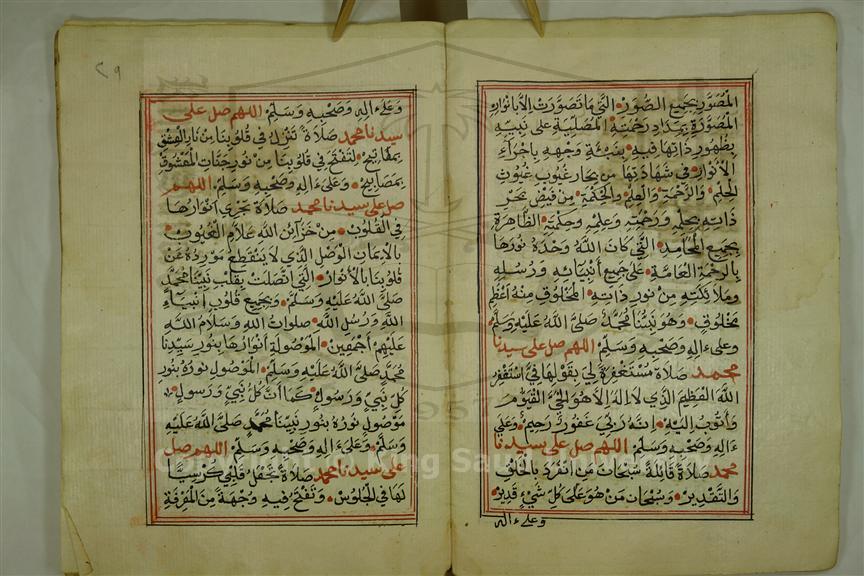 المصور بجميع الصور التي ما تصورت الا بانوار
المصورة بمداد رحمته المصلية على نبيه
بظهور ذاتها فيه بنبئة وجهه باجراء
الانوار في شهادتها من بحار غيوب غيوث
الحلم والرحمة والعلم والحكمة من فيض بحر
ذاته بحلمه ورحمته وعلمه وحكمته الظاهرة
بجميع المحامد التي كان الله وحده نورها
بالرحمة العامة على جميع أنبيائه ورسله
وملائكته من نور ذاته المخلوق منه اعظم
مخلوق وهو نبينا محمد صلى الله عليه وسلم
وعلىء اله وصحبه وسلم اللهم صل على سيدنا
محمد صلاة مستغفرة لي بقولها في استغفر
الله العظيم الذي لا اله الا هو الحي القيوم
وأتوب اليه انه ربي غفور رحيم وعلى
ءاله وصحبه وسلم اللهم صل على سيدنا
محمد صلاة قائلة سبحان من انفرد بالخلق
والتقدير وسبحان من هو على كل شيء قدير
وعلىء اله
٢٩
وعلىء اله وصحبه وسلم اللهم صل على
سيدنا محمد صلاة تنزل في قلوبنا من نار العشق
بمفاتيح لتفتح في قلوبنا من نور جنات المعشوق
بمصابيح وعلىء اله وصحبه وسلم اللهم
صل على سيدنا محمد صلاة تجري انوارها
في القلوب من خزآئن الله علام الغيوب
بالايمان الوصل الذي لا ينقطع مورده عن
قلوبنا بالانوار التي اتصلت بقلب نبينا محمد
صلى الله عليه وسلم وبجميع قلوب أنبياء
الله ورسل الله صلوات الله وسلام الله
عليهم أجمعين الموصولة انوارها بنور سيدنا
محمد صلى الله عليه وسلم الموصول نوره بنور
كل نبي ورسول كما أن كل نبي ورسول
موصول نوره بنور نبينا محمد صلى الله عليه
وسلم وعلىء اله وصحبه وسلم اللهم صل
على سيدنا محمد صلاة تجعل قلبي كرسيا
لها في الجلوس وتفتح فيه وجهة من المعرفة